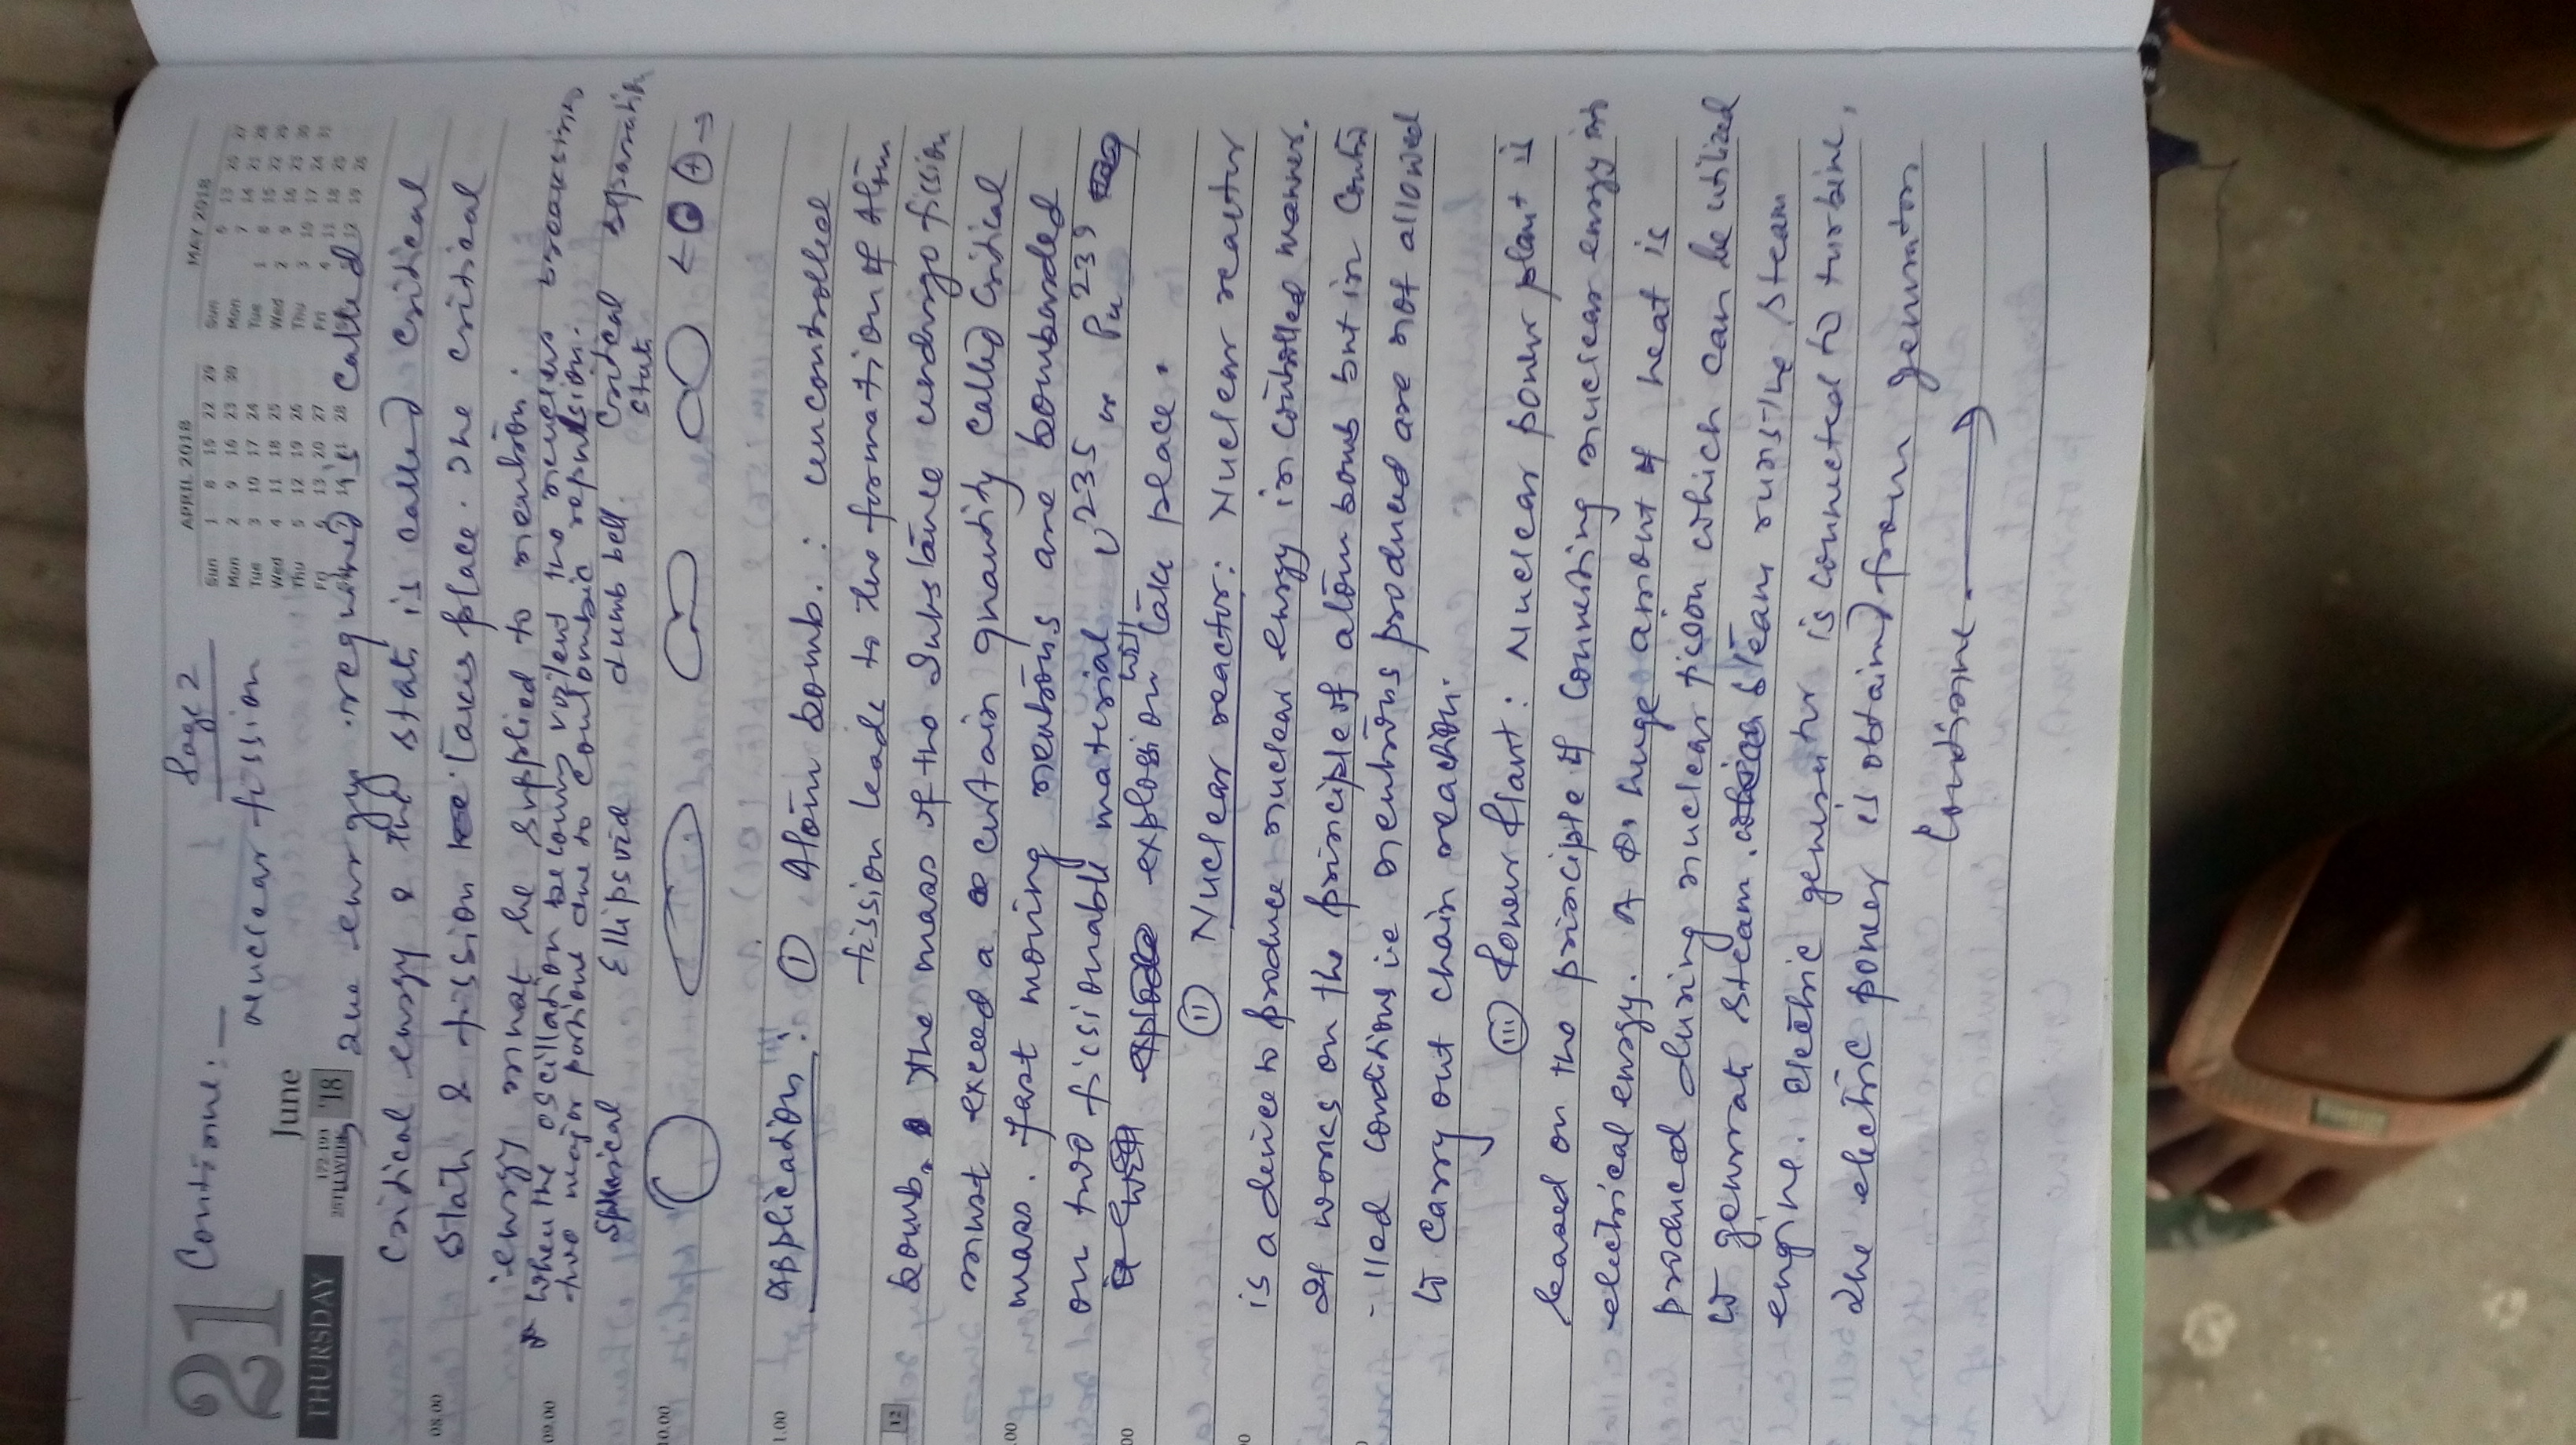 Page 2
Continue: —
nuclear fission
21
June
THURSDAY
172-193
25TH WEEK
'18
APRIL 2018
Sun 1 8 15 22 29
Mon 2 9 16 23 30
Tue 3 10 17 24
Wed 4 11 18 25
Thu 5 12 19 26
Fri 6 13 20 27
14 21 28
MAY 2018
Sun 6 13 20 27
Mon 7 14 21 28
Tue 1 8 15 22 29
Wed 2 9 16 23 30
Thu 3 10 17 24 31
Fri 4 11 18 25
12 19 26
The energy required is called
critical energy & the state is called critical
08.00
state & fission takes place. The critical
energy must be supplied to neutron.
09.00
When the oscillation become violent the nucleus breaks in
two major portions due to coulombic repulsion.
Spherical Ellipsoid dumb bell Critical state separation
10.00
Application: (i) Atom bomb. : uncontrolled
fission leads to the formation of Atom
12
bomb. The mass of the substance undergo fission
must exceed a certain quantity called Critical
mass. Fast moving neutrons are bombarded
on two fissionable material U 235 or Pu 239
will explosion take place.
(ii) Nuclear reactor: Nuclear reactor
is a device to produce nuclear energy in controlled manner.
It works on the principle of atom bomb but in contro
-lled conditions ie neutrons produced are not allowed
to carry out chain reaction.
(iii) Power Plant: Nuclear power plant is
based on the principle of converting nuclear energy into
electrical energy. A huge amount of heat is
produced during nuclear fission which can be utilized
to generate steam. Steam runs the steam
engine. Electric generator is connected to turbine,
The electric power is obtained from generator
Continue